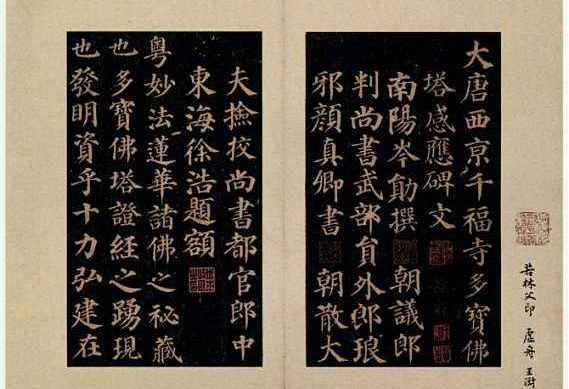 大唐西京千福寺多寶佛
塔感應碑文
南陽岑勛撰 朝議郎
判尚書武部員外郎琅
邪顏真卿書 朝散大
夫撿挍尚書都官郎中
東海徐浩題額
粵妙法蓮華諸佛之秘藏
也多寶佛塔證經之踴現
也發明資乎十力弘建在
若林父印 虛舟 王澍